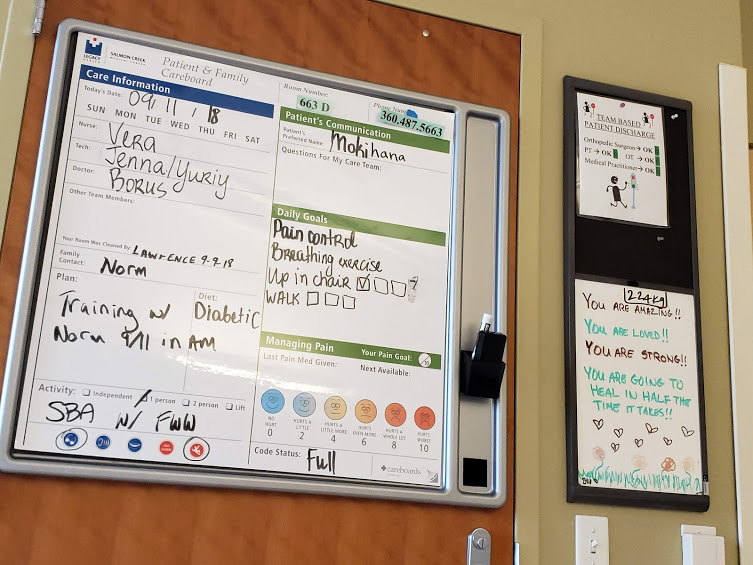 LEGACY
HEALTH
SALMON CREEK
MEDICAL CENTER
Patient & Family
Careboard
Care Information
Today's Date: 09/11/18
SUN MON TUE WED THU FRI SAT
Nurse: Vera
Tech: Jenna/Yuriy
Doctor: Borus
Other Team Members:
Your Room Was Cleaned By: LAWRENCE 9-9-18
Family
Contact: Norm
Plan:
Training w/
Norm 9/11 in AM
Diet:
Diabetic
Activity: Independent 1 person 2 person Lift
SBA w/ FWW
Room Number:
663 D
Phone
360.487.5663
Patient's Communication
Patient's
Preferred Name: Mokihana
Questions For My Care Team:
Daily Goals
Pain control
Breathing exercise
Up in chair
WALK
Managing Pain Your Pain Goal:
Last Pain Med Given: Next Available:
NO HURT
0
HURTS A LITTLE
2
HURTS A LITTLE MORE
4
HURTS EVEN MORE
6
HURTS A WHOLE LOT
8
HURTS WORST
10
Code Status: Full
careboards
TEAM BASED
PATIENT DISCHARGE
Orthopedic Surgeon → OK
PT → OK OT → OK
Medical Practitioner → OK
224kg
YOU ARE AMAZING!!
YOU ARE LOVED!!
YOU ARE STRONG!!
YOU ARE GOING TO
HEAL IN HALF THE
TIME IT TAKES!!